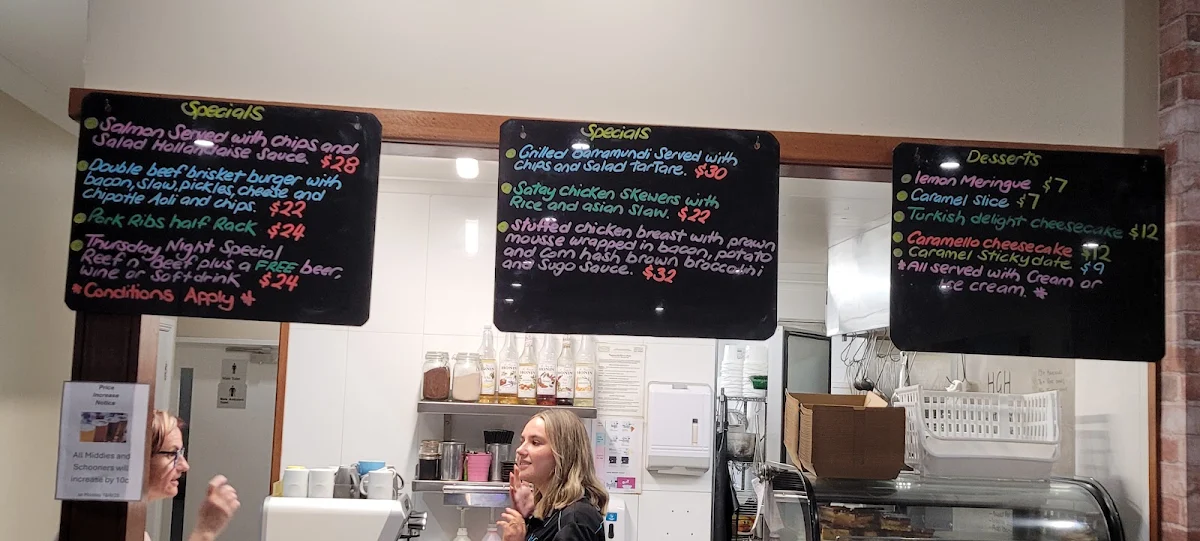 Specials
Salmon Served with chips and
Salad Hollandaise Sauce. $28
Double beef brisket burger with
bacon, slaw, pickles, cheese and
chipotle Aoli and chips. $22
Pork Ribs half Rack $24
Thursday Night Special
Reef n' Beef plus a FREE beer,
wine or Softdrink $24
*Conditions Apply*
Specials
Grilled Barramundi Served with
Chips and Salad Tartare. $30
Satay chicken Skewers with
Rice and asian slaw. $22
Stuffed chicken breast with prawn
mousse wrapped in bacon, potato
and corn hash brown broccolini
and Sugo Sauce. $32
Desserts
lemon Meringue $7
Caramel slice $7
Turkish delight cheesecake $12
Caramello cheesecake $12
Caramel Stickydate $9
*All served with Cream or
Ice cream.*
Price
Increase
Notice
All Middies and
Schooners will
increase by 10c
HGH